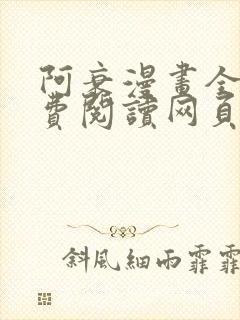 阿衰漫畫全
費閱讀网頁
斜風細雨霏霏